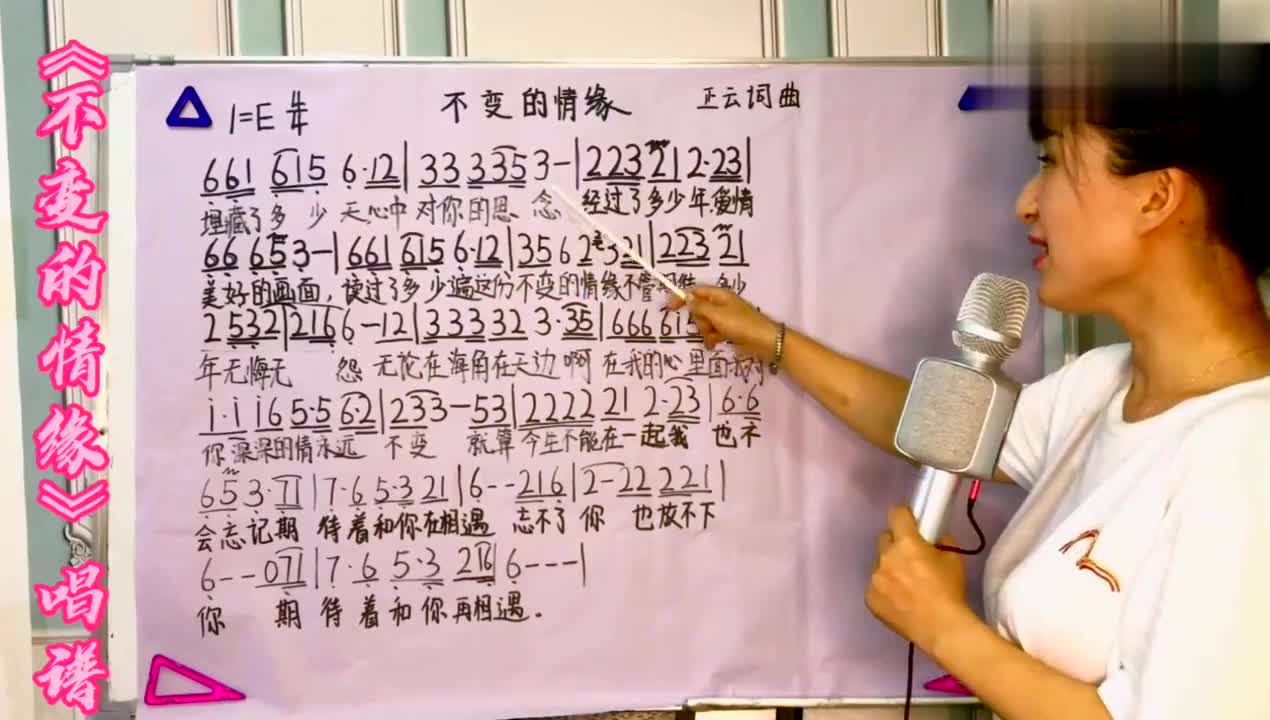 《不变的情缘》唱谱
1=E 4/4 不变的情缘 正云词曲
661 615 6·12|33 3335 3-|223 21 2·23|
埋藏了多 少 天心中 对你的思 念 经过了多少年.爱情
66 653-|661 615 6·12|35 6 2 321|223 21
美好的画面, 读过了多少遍这份不变的情缘不管 多少
2 532|2166-12|333 32 3·35|666 615
年无悔无 怨 无论在海角在天边啊 在我的心里面我对
i·i i65·5 6·2|233-53|2222 21 2·23|6·6
你深深的情永远 不变 就算今生不能在一起我 也不
65 3·71|7·6 5·3 21|6--216|2-22 221|
会忘记期 待着和你在相遇 忘不了 你 也放不下
6--071|7·6 5·3 216|6---|
你 期 待着和你再相遇.